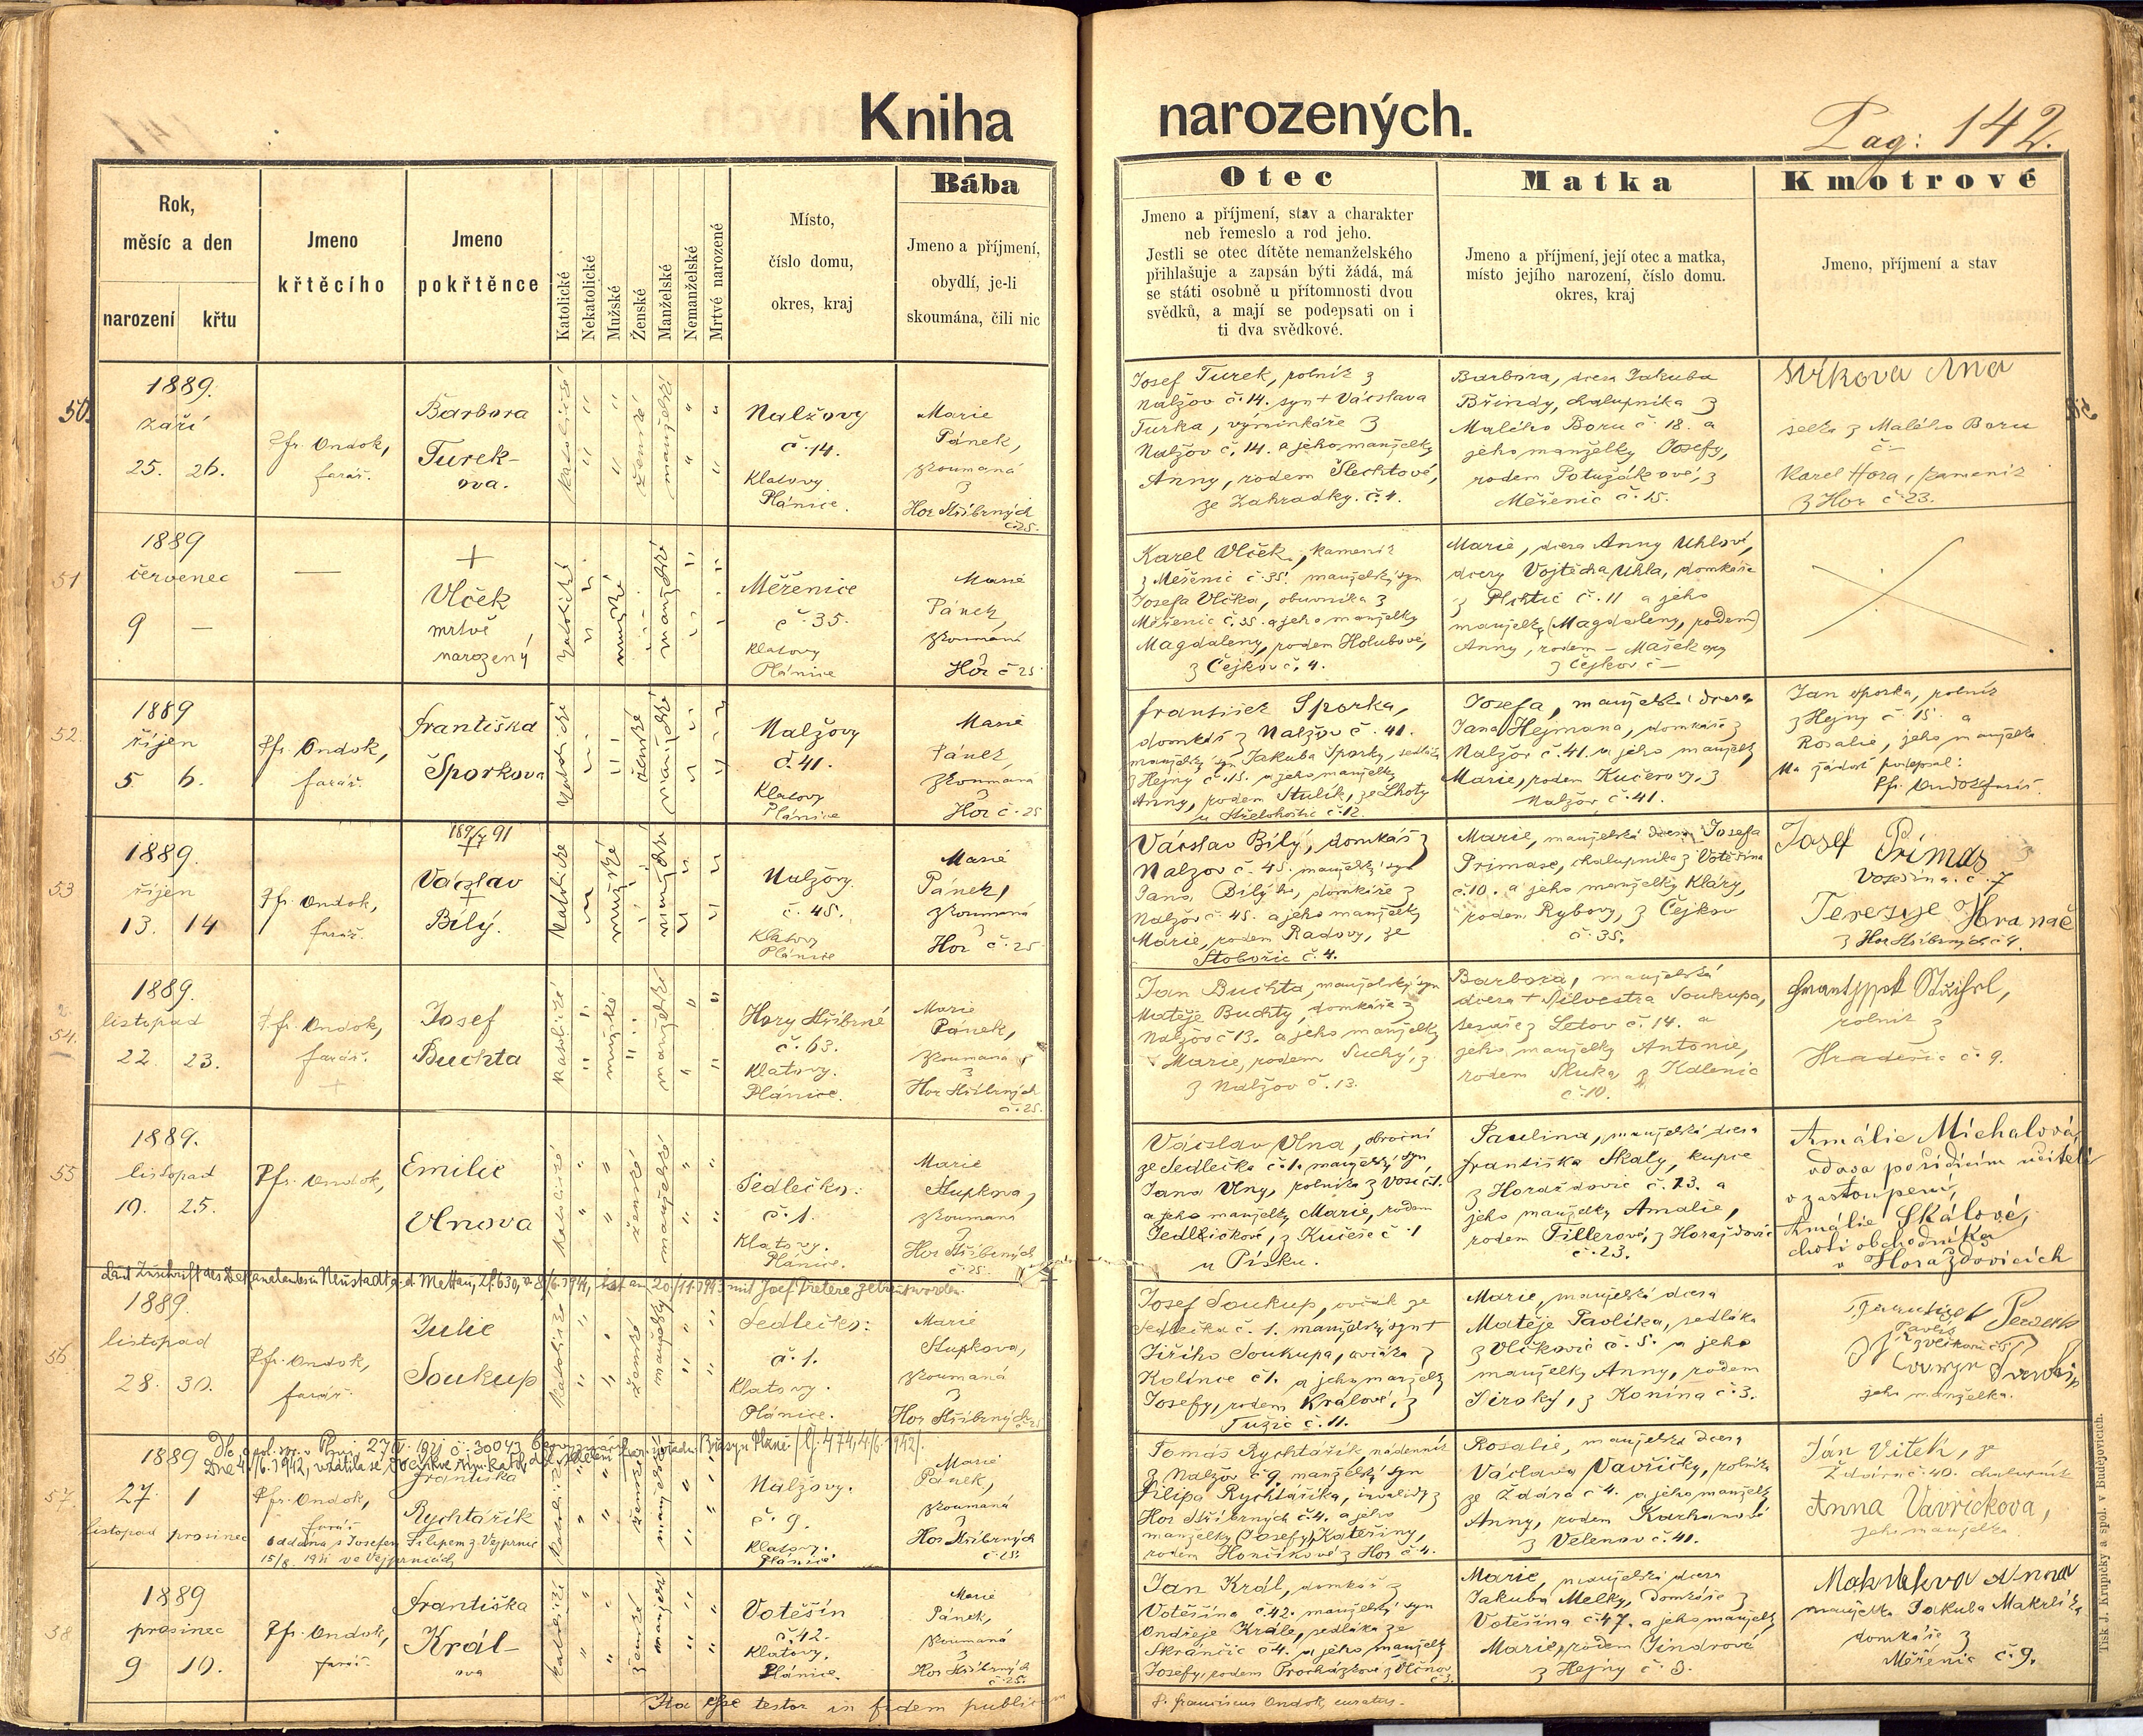 Kniha narozených.
Pag: 142.
Rok,
měsíc a den
narození křtu
Jmeno
křtěcího
Jmeno
pokřtěnce
Katolické
Nekatolické
Mužské
Ženské
Manželské
Nemanželské
Mrtvé narozené
Místo,
číslo domu,
okres, kraj
Bába
Jmeno a příjmení,
obydlí, je-li
skoumána, čili nic
Otec
Jmeno a příjmení, stav a charakter
neb řemeslo a rod jeho.
Jestli se otec dítěte nemanželského
přihlašuje a zapsán býti žádá, má
se státi osobně u přítomnosti dvou
svědků, a mají se podepsati on i
ti dva svědkové.
Matka
Jmeno a příjmení, její otec a matka,
místo jejího narození, číslo domu.
okres, kraj
Kmotrové
Jmeno, příjmení a stav
50.
1889.
září
25. 26.
Pfr. Ondok,
farář.
Barbora
Turek-
ova.
katolické
ženské
manželské
Nalžovy
č. 14.
Klatovy
Plánice.
Marie
Pánek,
zkoumaná
z
Hor Stříbrných
č. 25.
Josef Turek, rolník z
Nalžov č. 14. syn + Václava
Turka, výminkáře z
Nalžov č. 14. a jeho manželky
Anny, rodem Šlechtové,
ze Zahradky. č. 4.
Barbora, dcera Jakuba
Břindy, chalupníka z
Malého Boru č. 18. a
jeho manželky Josefy,
rodem Potužákové, z
Měřenic č. 15.
z Malého Boru
č. –
Karel Hora, kameník
z Hor č. 23.
51
1889
červenec
9 —
—
+
Vlček
mrtvě
narozený
katolické
mužské
manželské
Měřenice
č. 35.
Klatovy
Plánice
Marie
Pánek,
zkoumaná
z
Hor č. 25
Karel Vlček, kameník
z Měřenic č. 35. manželský syn
Josefa Vlčka, obuvníka z
Měřenic č. 35. a jeho manželky
Magdaleny, rodem Holubové,
z Čejkov č. 4.
Marie, dcera Anny Uhlové,
dcery Vojtěcha Uhla, domkáře
z č. 11 a jeho
manželky (Magdaleny, rodem)
Anny, rodem – Mašek
z Čejkov č –
52.
1889
říjen
5 6.
Pfr. Ondok,
farář.
Františka
Šporkova
katolické
ženské
manželské
Nalžovy
č. 41.
Klatovy
Plánice
Marie
Pánek,
zkoumaná
z
Hor č. 25
František Šporka,
domkář z Nalžov č. 41.
manželský syn Jakuba Šporky, sedláka
z Hejny č. 15. a jeho manželky
Anny, rodem Stulík, ze Lhoty
u Střelohoštic č. 12.
Josefa, manželská dcera
Jana Hejmana, domkáře z
Nalžov č. 41. a jeho manželky
Marie, rodem Kučerovy, z
Nalžov č. 41.
Jan Šporka, rolník
z Hejny č. 15. a
Rosalie, jeho manželka
Na žádost podepsal:
Pfr. Ondok farář.
53
1889.
říjen
13. 14
Pfr. Ondok,
farář.
Václav
+
Bílý.
katolické
mužské
manželské
Nalžovy.
č. 45.
Klatovy
Plánice
Marie
Pánek,
zkoumaná
z
Hor č. 25
Václav Bílý, domkář z
Nalžov č. 45. manželský syn
Jana Bílýho, domkáře z
Nalžov č. 45. a jeho manželky
Marie, rodem Radovy, ze
Stobořic č. 4.
Marie, manželská dcera Josefa
Primase, chalupníka z Votěšína
č. 10. a jeho manželky Kláry,
rodem Rybovy, z Čejkov
č. 35.
Josef Primas z
č. 7
z Hor Stříbrných č. 9.
54.
1889.
listopad
22. 23.
Pfr. Ondok,
farář.
+
Josef
Buchta
katolické
mužské
manželské
Hory Stříbrné
č. 63.
Klatovy.
Plánice.
Marie
Pánek,
zkoumaná
z
Hor Stříbrných
č. 25.
Jan Buchta, manželský syn
Matěje Buchty, domkáře z
Nalžov č. 13. a jeho manželky
Marie, rodem Suchý, z
z Nalžov č. 13.
Barbora, manželská
dcera + Silvestra Soukupa,
tesaře z Letov č. 14. a
jeho manželky Antonie,
rodem Sluka, z Kalenic
č. 10.
rolník z
Hradešic č. 9.
55
1889.
listopad
19. 25.
Pfr. Ondok,
Emilie
Vlnova
katolické
ženské
manželské
Sedlečko:
č. 1.
Klatovy.
Plánice.
Marie
Stupkova,
zkoumaná
z
Hor Stříbrných
č. 25.
Václav Vlna, obroční
ze Sedlečka č. 1. manželský syn
Jana Vlny, rolníka z č. 1.
a jeho manželky Marie, rodem
Jedličkové, z Kučeře č. 1
u Písku.
Paulina, manželská dcera
Františka Skaly, kupce
z Horažďovic č. 23. a
jeho manželky Amalie,
rodem Tillerové, z Horažďovic
č. 23.
Amálie Michalová,
vdova po řídícím učiteli
v zastoupení,
Amálie Skálové,
choti obchodníka
v Horažďovicích
Laut Zuschrift des Dekanalamtes in Neustadt a. d. Mettau, Zl. 630, v. 8/6. 1944, ist am 20./11. 1943 mit Josef getraut worden.
56
1889.
listopad
28. 30.
Pfr. Ondok,
farář.
Julie
Soukup
katolické
ženské
manželské
Sedlečko:
č. 1.
Klatovy.
Plánice.
Marie
Stupkova,
zkoumaná
z
Hor Stříbrných
č. 25
Josef Soukup, ovčák ze
Sedlečka č. 1. manželský syn +
Jiřího Soukupa, ovčáka z
Kolince č. 1. a jeho manželky
Josefy, rodem Králové, z
Tužic č. 11.
Marie, manželská dcera
Matěje Pavlíka, sedláka
z Vlčkovic č. 5. a jeho
manželky Anny, rodem
Široký, z Konína č. 3.
jeho manželka.
57.
1889
27. 1
listopad prosinec
Dne 4./6. 1942, vrátila se do církve římsko kat.
Pfr. Ondok,
farář
Františka
Rychtářík
oddána s Josefem Filipem z Vejprnic
ve Vejprnicích
katolické
ženské
manželské
Nalžovy.
č. 9.
Klatovy.
Plánice
Marie
Pánek,
zkoumaná
z
Hor Stříbrných
č. 25.
Tomáš Rychtářík, nádenník
z Nalžov č. 9. manželský syn
Filipa Rychtáříka, invalidy z
Hor Stříbrných č. 4. a jeho
manželky (Josefy) Kateřiny,
rodem Hončíkové z Hor č. 4.
Rosalie, manželská dcera
Václava Vavřičky, rolníka
ze Ždára č. 4. a jeho manželky
Anny, rodem Karhanové
z Velenov č. 41.
Ján Vitek, ze
Ždára č. 40. chalupník
Anna Vavřickova,
jeho manželka
58.
1889
prosinec
9 10.
Pfr. Ondok,
farář.
Františka
Král-
ova
katolické
ženské
manželské
Votěšín
č. 42.
Klatovy.
Plánice.
Marie
Pánek,
zkoumaná
z
Hor Stříbrných
č. 25.
Jan Král, domkář z
Votěšína č. 42. manželský syn
Ondřeje Krále, sedláka ze
Skránčic č. 4. a jeho manželky
Josefy, rodem Procházkové z Vlčnov
č. 3.
Marie, manželská dcera
Jakuba Melky, domkáře z
Votěšína č. 47. a jeho manželky
Marie, rodem Jindrové
z Hejny č. 3.
Anna
manželka Jakuba Makrlíka
domkáře z
Měřenic č. 9.
Ita esse testor in fidem publicam
P. Franciscus Ondok, curatus.
Tisk J. Krupičky a spol. v Budějovicích.